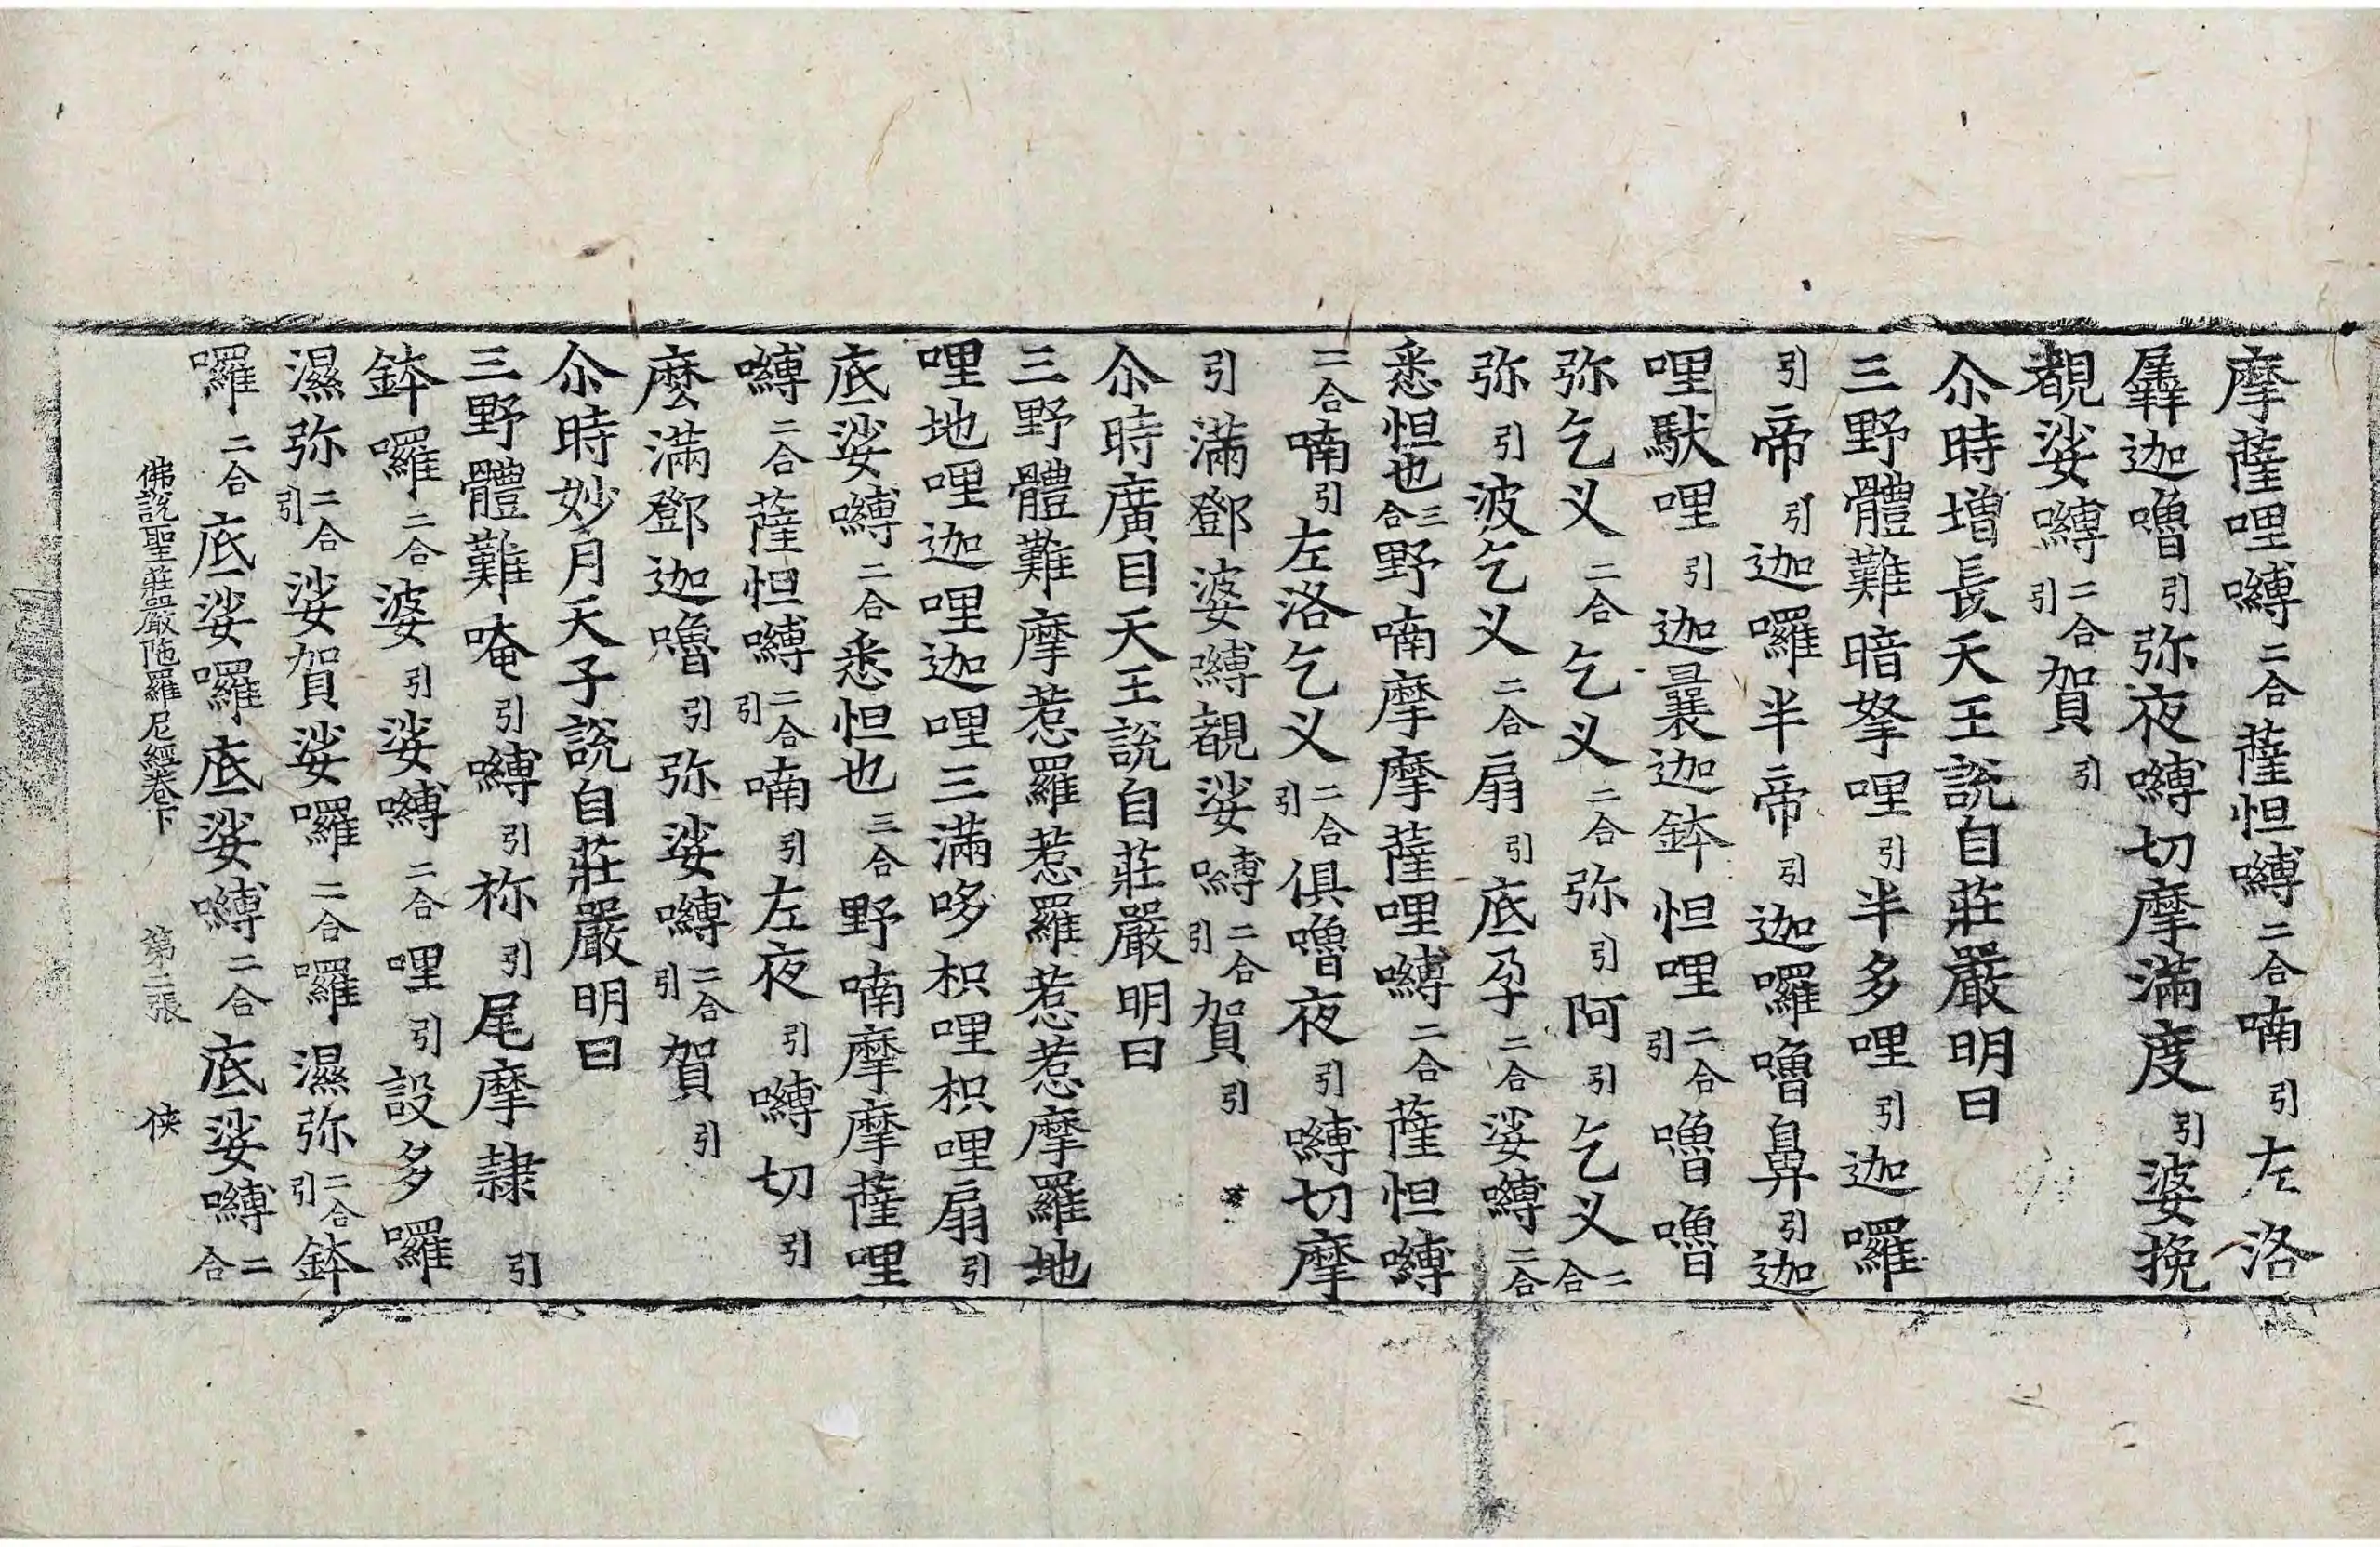 摩薩哩嚩二合薩怛嚩二合喃引左洛
羼迦嚕引弥夜嚩切摩滿度引婆挽
覩娑嚩二合引賀引
尒時增長天王說自莊嚴明曰
三野體難暗拏哩引半多哩引迦囉
引帝引迦囉半帝引迦囉嚕鼻引迦
哩馱哩引迦曩迦鉢怛哩二合引嚕嚕
弥乞义二合乞义二合弥引阿引乞义二合
弥引波乞义二合扇引底孕二合娑嚩二合
悉怛也三合野喃摩摩薩哩嚩二合薩怛嚩
二合喃引左洛乞义二合引俱嚕夜引嚩切摩
引滿鄧婆嚩覩娑嚩二合引賀引
尒時廣目天王說自莊嚴明曰
三野體難摩惹羅惹羅惹惹摩羅地
哩地哩迦哩迦哩三滿哆枳哩枳哩扇引
底娑嚩二合悉怛也三合野喃摩摩薩哩
嚩二合薩怛嚩二合引喃引左夜引嚩切引
麽滿鄧迦嚕引弥娑嚩二合引賀引
尒時妙月天子說自莊嚴明曰
三野體難唵引嚩引祢引尾摩隷引
鉢囉二合婆引娑嚩二合哩引設多囉
濕弥二合引娑賀娑囉二合囉濕弥二合引鉢
囉二合底娑囉底娑嚩二合底娑嚩二合
佛說聖莊嚴陁羅尼經卷下 第二張 俠